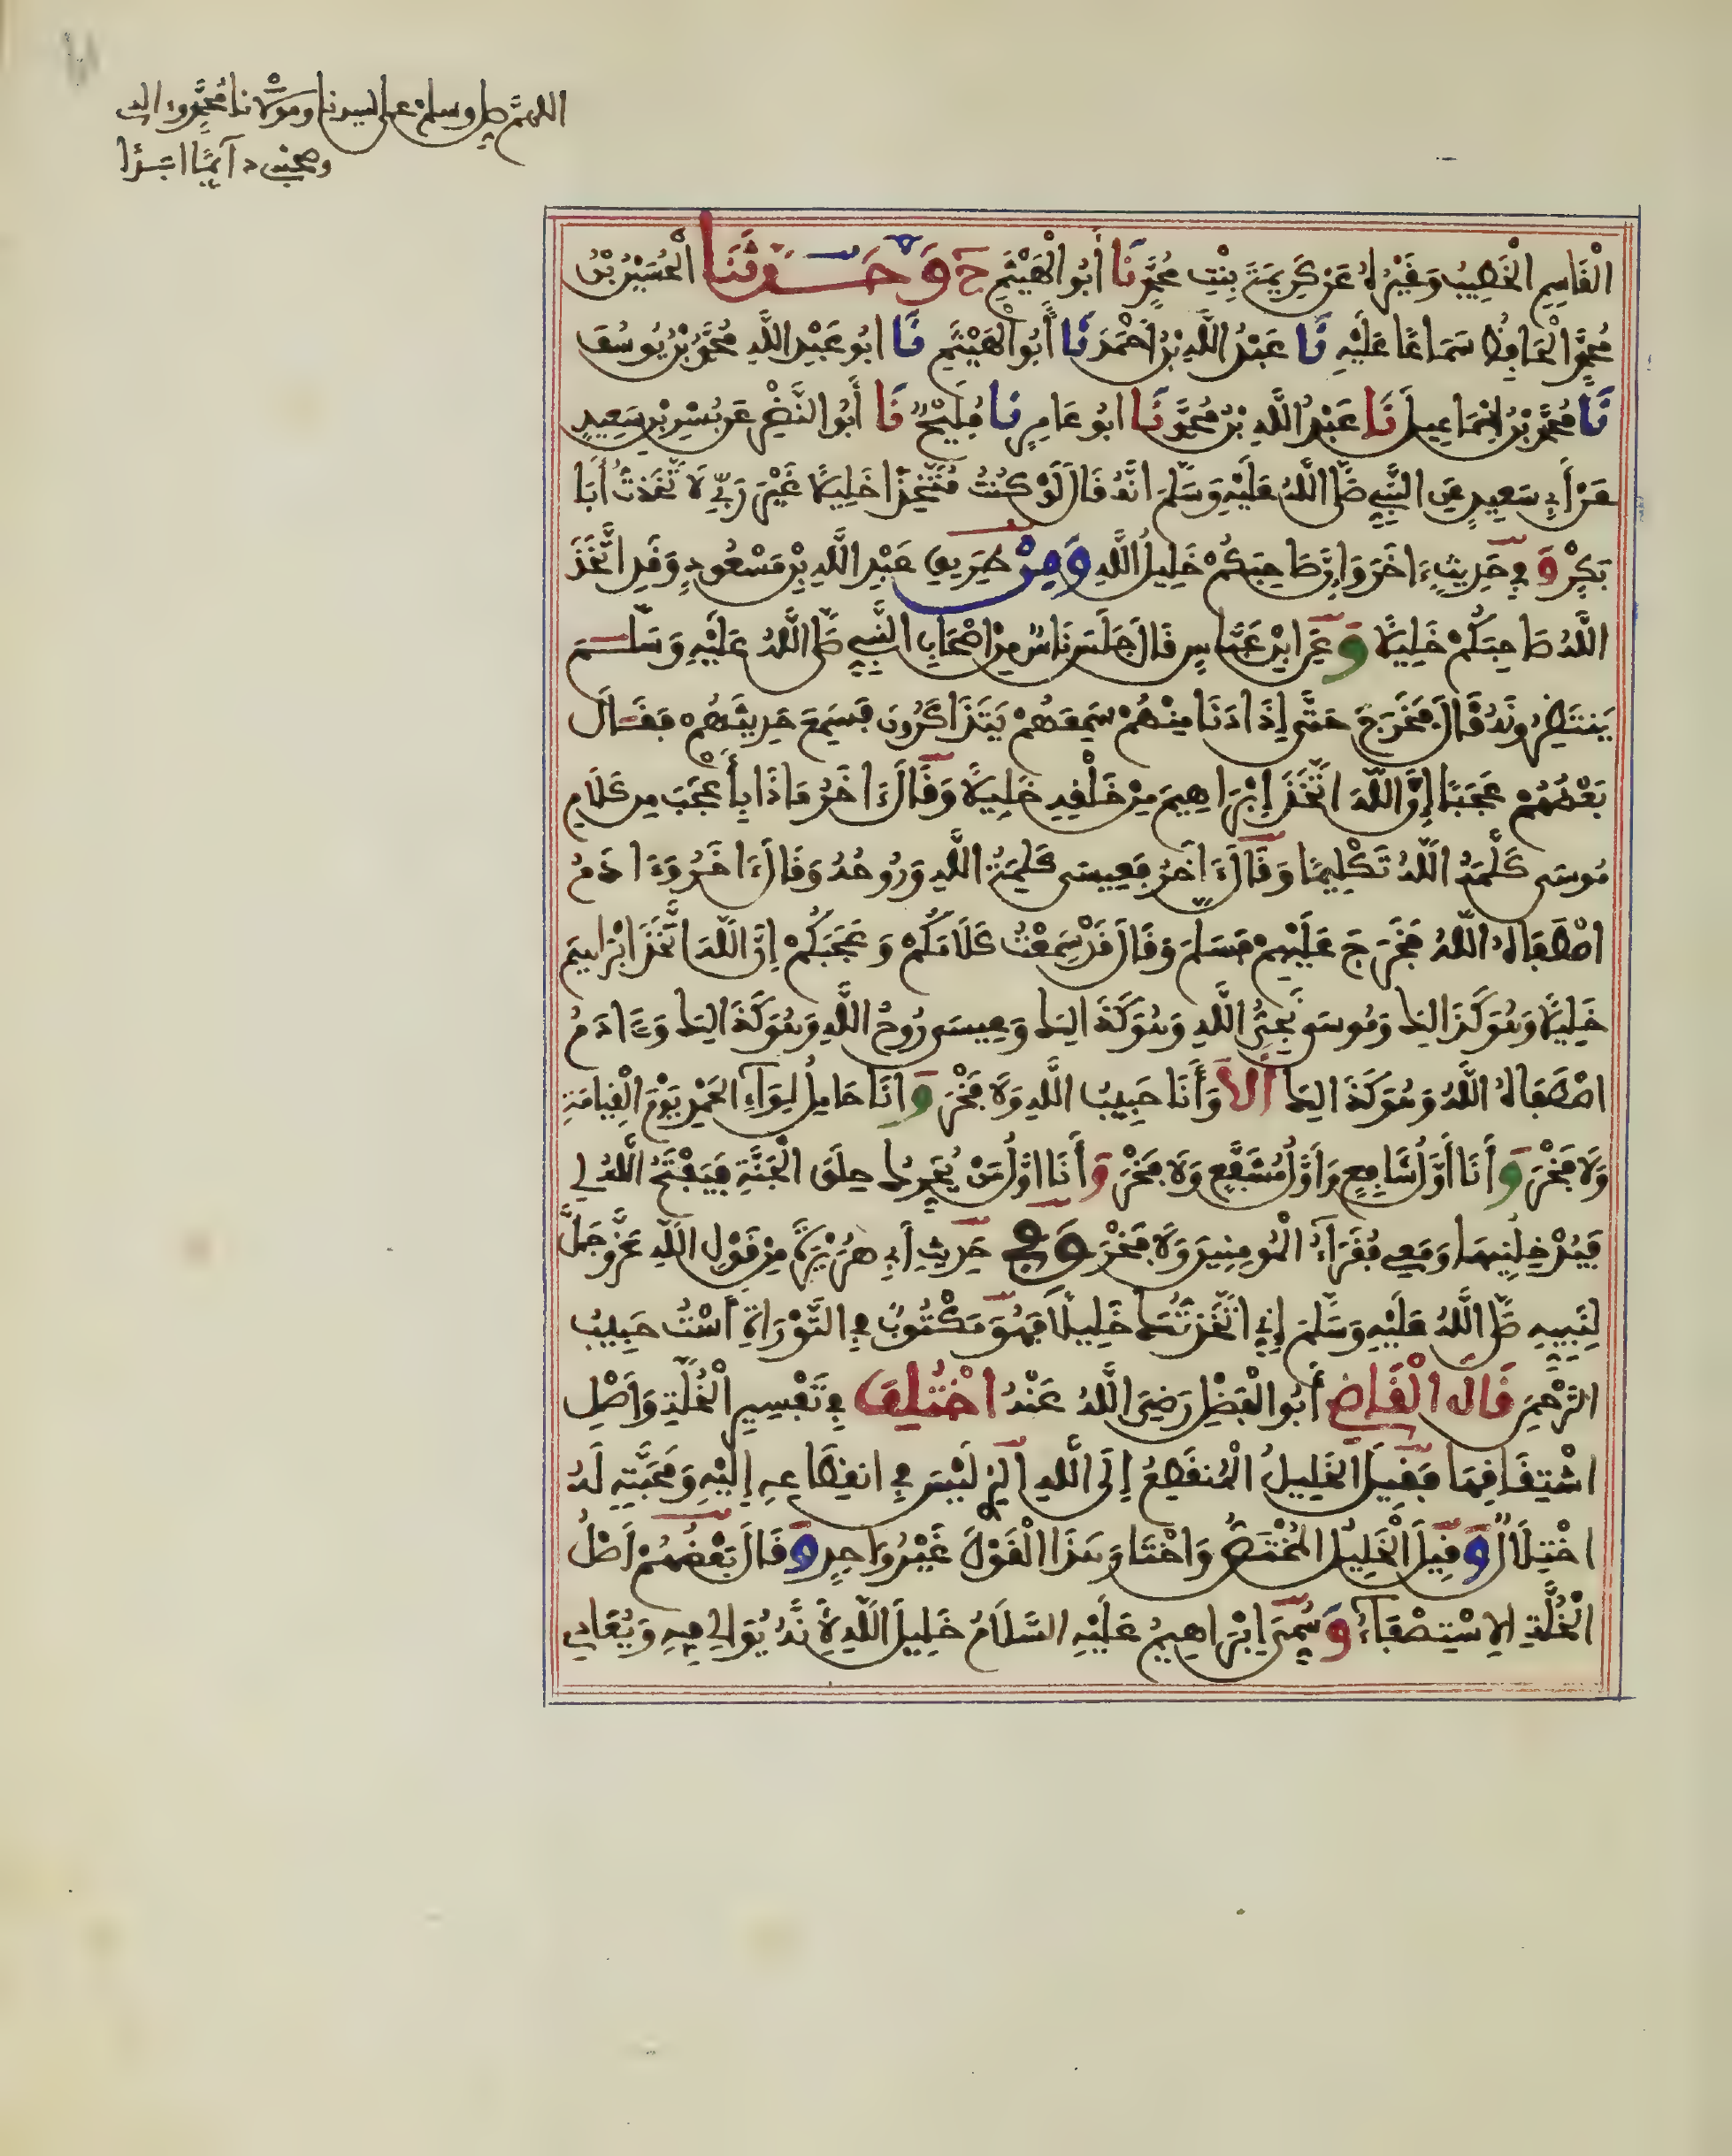 اللهم صل وسلم على سيدنا ومولانا محمد وءاله
وصحبه دآئما ابدا
الْقَاسِمِ الْخَطِيبُ وَغَيْرُهُ عَنْ كَرِيمَةَ بِنْتِ مُحَمَّدٍ نَا أَبُو الْهَيْثَمِ ح وَحَدَّثَنَا الْحُسَيْنُ بْنُ
مُحَمَّدٍ الْحَافِظُ سَمَاعًا عَلَيْهِ نَا عَبْدُ اللَّهِ بْنُ أَحْمَدَ نَا أَبُو الْهَيْثَمِ نَا ابُو عَبْدِ اللَّهِ مُحَمَّدُ بْنُ يُوسُفَ
نَا مُحَمَّدُ بْنُ إِسْمَاعِيلَ نَا عَبْدُ اللَّهِ بْنُ مُحَمَّدٍ نَا ابُو عَامِرٍ نَا فُلَيْحٌ نَا أَبُو النَّضْرِ عَن بُسْرِ بْنِ سَعِيدٍ
عَنْ أَبِي سَعِيدٍ عَنِ النَّبِيِّ صَلَّى اللَّهُ عَلَيْهِ وَسَلَّمَ انَّهُ قَالَ لَوْ كُنْتُ مُتَّخِذًا خَلِيلًا غَيْرَ رَبِّي لَاتَّخَذتُ أَبَا
بَكْرٍ وَفِي حَدِيثٍ ءَاخَرَ وَإِنَّ صَاحِبَكُمْ خَلِيلُ اللَّهِ وَمِنْ طَرِيقِ عَبْدِ اللَّهِ بْنِ مَسْعُودٍ وَقَدِ اتَّخَذَ
اللَّهُ صَاحِبَكُمْ خَلِيلًا وَعَنِ ابْنِ عَبَّاسٍ قَالَ جَلَسَ نَاسٌ مِنْ اصْحَابِ النَّبِيِّ صَلَّى اللَّهُ عَلَيْهِ وَسَلَّمَ
يَنتَظِرُونَهُ قَالَ فَخَرَجَ حَتَّى إِذَا دَنَا مِنْهُمْ سَمِعَهُمْ يَتَذَاكَرُونَ فَسَمِعَ حَدِيثَهُمْ فَقَالَ
بَعْضُهُمْ عَجَبًا إِنَّ اللَّهَ اتَّخَذَ إِبْرَاهِيمَ مِنْ خَلْقِهِ خَلِيلًا وَقَالَ ءَاخَرُ مَاذَا بِأَعْجَبَ مِن كَلَامِ
مُوسَى كَلَّمَهُ اللَّهُ تَكْلِيمًا وَقَالَ ءَاخَرُ فَعِيسَى كَلِمَةُ اللَّهِ وَرُوحُهُ وَقَالَ ءَاخَرُ وَءَادَمُ
اصْطَفَاهُ اللَّهُ فَخَرَجَ عَلَيْهِمْ فَسَلَّمَ وَقَالَ قَدْ سَمِعْتُ كَلَامَكُمْ وَعَجَبَكُمْ إِنَّ اللَّهَ اتَّخَذَ ابْرَاهِيمَ
خَلِيلًا وَهُوَ كَذَالِكَ وَمُوسَى نَجِيُّ اللَّهِ وَهُوَ كَذَالِكَ وَعِيسَى رُوحُ اللَّهِ وَهُوَ كَذَالِكَ وَءَادَمُ
اصْطَفَاهُ اللَّهُ وَهُوَ كَذَالِكَ أَلَا وَأَنَا حَبِيبُ اللَّهِ وَلَا فَخْرَ وَأَنَا حَامِلُ لِوَآءِ الْحَمْدِ يَوْمَ الْقِيَامَةِ
وَلَا فَخْرَ وَأَنَا أَوَّلُ شَافِعٍ وَأَوَّلُ مُشَفَّعٍ وَلَا فَخْرَ وَأَنَا أَوَّلُ مَنْ يُحَرِّكُ حِلَقَ الْجَنَّةِ فَيَفْتَحُ اللَّهُ لِي
فَيُدْخِلُنِيهَا وَمَعِي فُقَرَآءُ الْمُومِنِينَ وَلَا فَخْرَ وَفِي حَدِيثِ أَبِي هُرَيْرَةَ مِنْ قَوْلِ اللَّهِ عَزَّ وَجَلَّ
لِنَبِيِّهِ صَلَّى اللَّهُ عَلَيْهِ وَسَلَّمَ إِنِّي اتَّخَذتُكَ خَلِيلًا فَهُوَ مَكْتُوبٌ فِي التَّوْرَاةِ أَسْتُ حَبِيبُ
الرَّحْمَنِ قَالَ الْقَاضِي أَبُو الْفَضْلِ رَضِيَ اللَّهُ عَنْهُ اخْتُلِفَ فِي تَفْسِيرِ الْخُلَّةِ وَأَصْلِ
اشْتِقَاقِهَا فَقِيلَ الْخَلِيلُ الْمُنقَطِعُ إِلَى اللَّهِ الَّذِي لَيْسَ فِي انقِطَاعِهِ إِلَيْهِ وَمَحَبَّتِهِ لَهُ
اخْتِلَالٌ وَقِيلَ الْخَلِيلُ الْمُخْتَصُّ وَاخْتَارَ هَذَا الْقَوْلَ غَيْرُ وَاحِدٍ وَقَالَ بَعْضُهُمْ أَصْلُ
الْخُلَّةِ الِاسْتِصْفَآءُ وَسُمِّيَ إِبْرَاهِيمُ عَلَيْهِ السَّلَامُ خَلِيلَ اللَّهِ لِأَنَّهُ يُوَالِي فِيهِ وَيُعَادِي